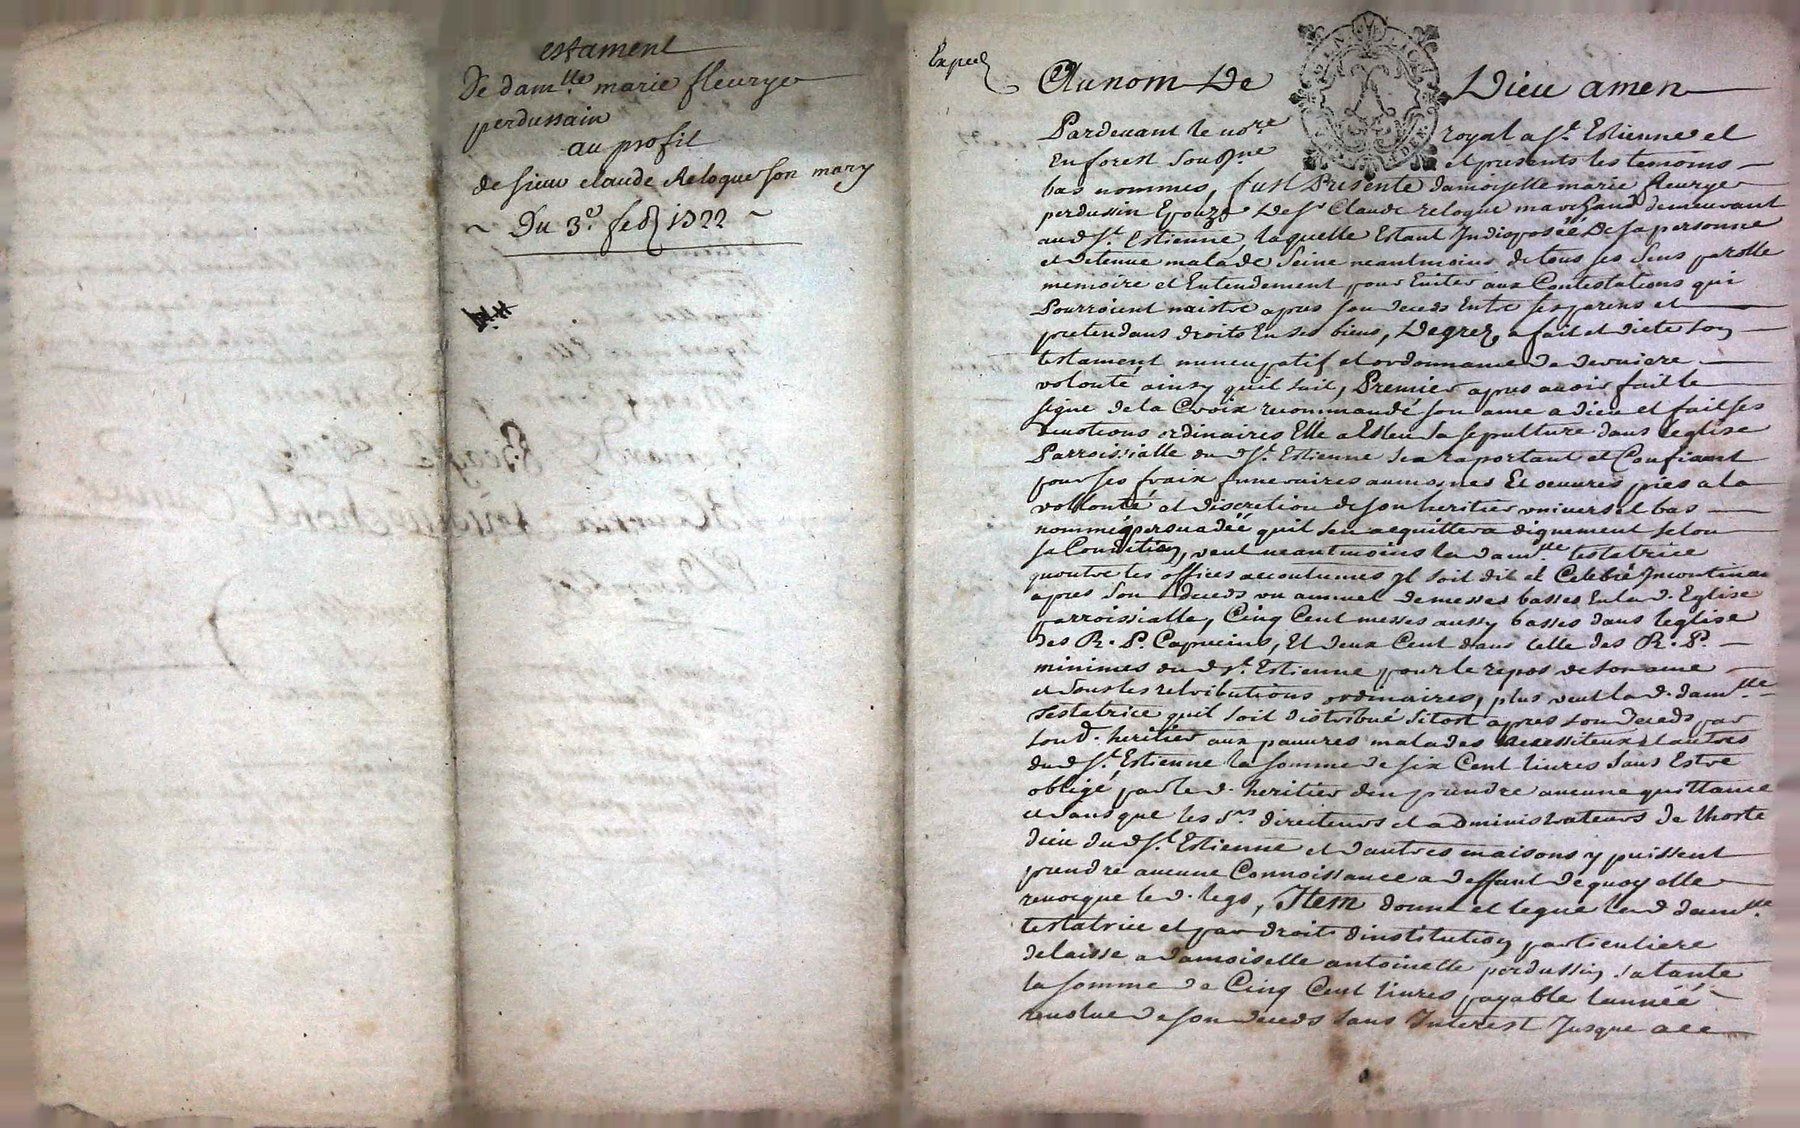 estament
De dam.lle marie fleurye
perdussain
au profit
de sieur claude Reloque son mary
Du 3.e feb 1722
Exped
Au nom De Dieu amen
Pardevant le no.re royal a S.t Estienne et
En forest soubz.ne et presents les temoins
bas nommes, fust Presente damoiselle marie fleurye
perdussin Epouze De S.r Claude reloque marchand demeurant
aud S.t Estienne, laquelle Estant Indisposéé De sa personne
et detenue malade Seine neantmoins de tous ses sens parolle
memoire et Entendement pour Eviter aux Contestations qui
Pourroient naistre apres son deceds Entre ses parens et
pretendans droits En ses biens, De gres, a fait et dicté son
testament nuncupatif et ordonnance de derniere
volonté ainsy quil suit, Premier apres avoir fait le
signe de la Croix recommandé son ame a dieu et fait ses
devotions ordinaires Elle a Esleu sa sepulture dans leglise
Parroissialle du d S.t Estienne sen raportant et Confiant
pour ses fraix funeraires aumosnes Et oeuvres pies a la
vollonté et discretion de son heritier universel bas
nommé persuadéé quil sen acquittera dignement selon
sa Condition, veut neantmoins la d dam.lle testatrice
quoutre les offices accoutumes yl soit dit et Celebré Incontinan
apres son deceds un annuel de messes basses En la d. Eglise
parroissialle, Cinq Cent messes aussy basses dans leglise
des R. P. Capucins, Et deux Cent dans celle des R. P.
minimes du d S.t Estienne pour le repos de son ame
et sous les retributions ordinaires, plus veut la d. dam.lle
testatrice quil soit distribué sitost apres son deceds par
son d. heritier aux pauvres malades necessiteux et autres
du d S.t Estienne la somme de six Cent livres sans Estre
obligé par le d. heritier den prendre aucune quittance
et sans que les S.rs directeurs et administrateurs de lhoste
dieu du d S.t Estienne et dautres maisons y puissent
prendre aucune Connoissance a deffaut de quoy elle
revoque le d. legs, Item donne et legue la d dam.lle
testatrice et par droit dinstitution particuliere
delaisse a damoiselle antoinette perdussin, sa tante
la somme de Cinq Cent livres payable lannéé
revolue de son deceds sans Interest Jusque a ce